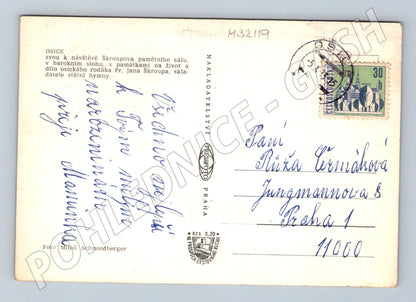 M32119
OSICE
zvou k návštěvě Škroupova pamětního sálu
v barokním slohu, s památkami na život a
dílo osického rodáka Fr. Jana Škroupa, skla-
datele státní hymny.
Všechno nejlepší
k Tvým milým
narozeninám
přeje Maminka
Foto Miloš Schmiedberger
NAKLADATELSTVÍ
PRAHA
KčS 0,70
OSICE
30
ČESKOSLOVENSKO
Paní
Růža Čermáková
Jungmannova 8
Praha 1
11000
POHLEDNICE - GASH